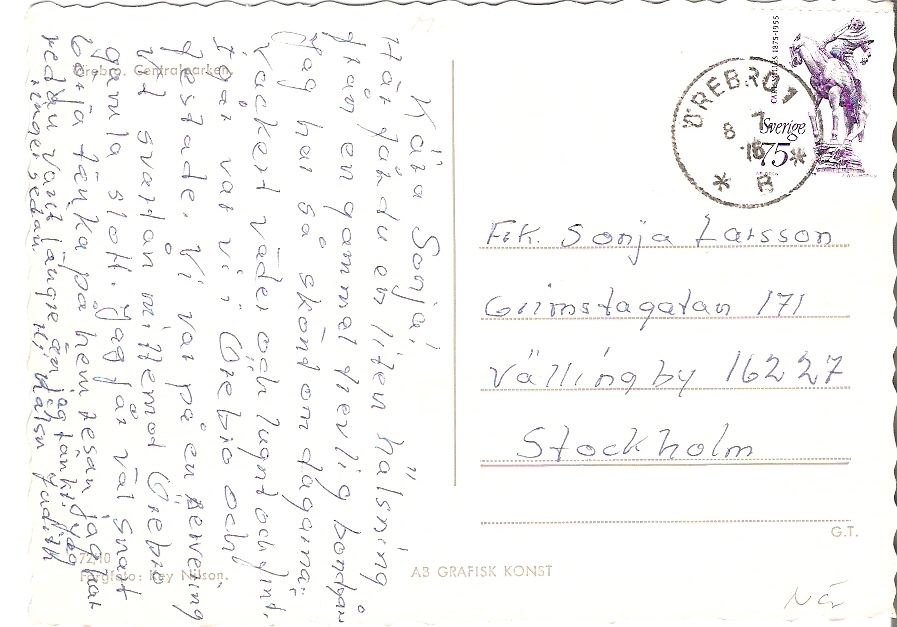 Kära Sonja!
Här får du en liten hälsning
från en gammal trevlig bondgår
Jag har så skönt om dagarna.
Vackert väder och lugnt och fint.
Igår var vi i Örebro och
festade. Vi var på en servering
Vid svartån mittemot Örebro
gamla slott. Jag får väl snart
börja tänka på hemresan jag har
redan varit längre än jag tänkt. Jag
ringer sedan. Hälsn Judith
Örebro. Centralparken.
72/10
Färgfoto: Key Nilson.
AB GRAFISK KONST
G.T.
CARL MILLES 1875-1955
Sverige
75
ÖREBRO 1
8 7
-16
* B *
Frk. Sonja Larsson
Grimstagatan 171
Vällingby 162 27
Stockholm